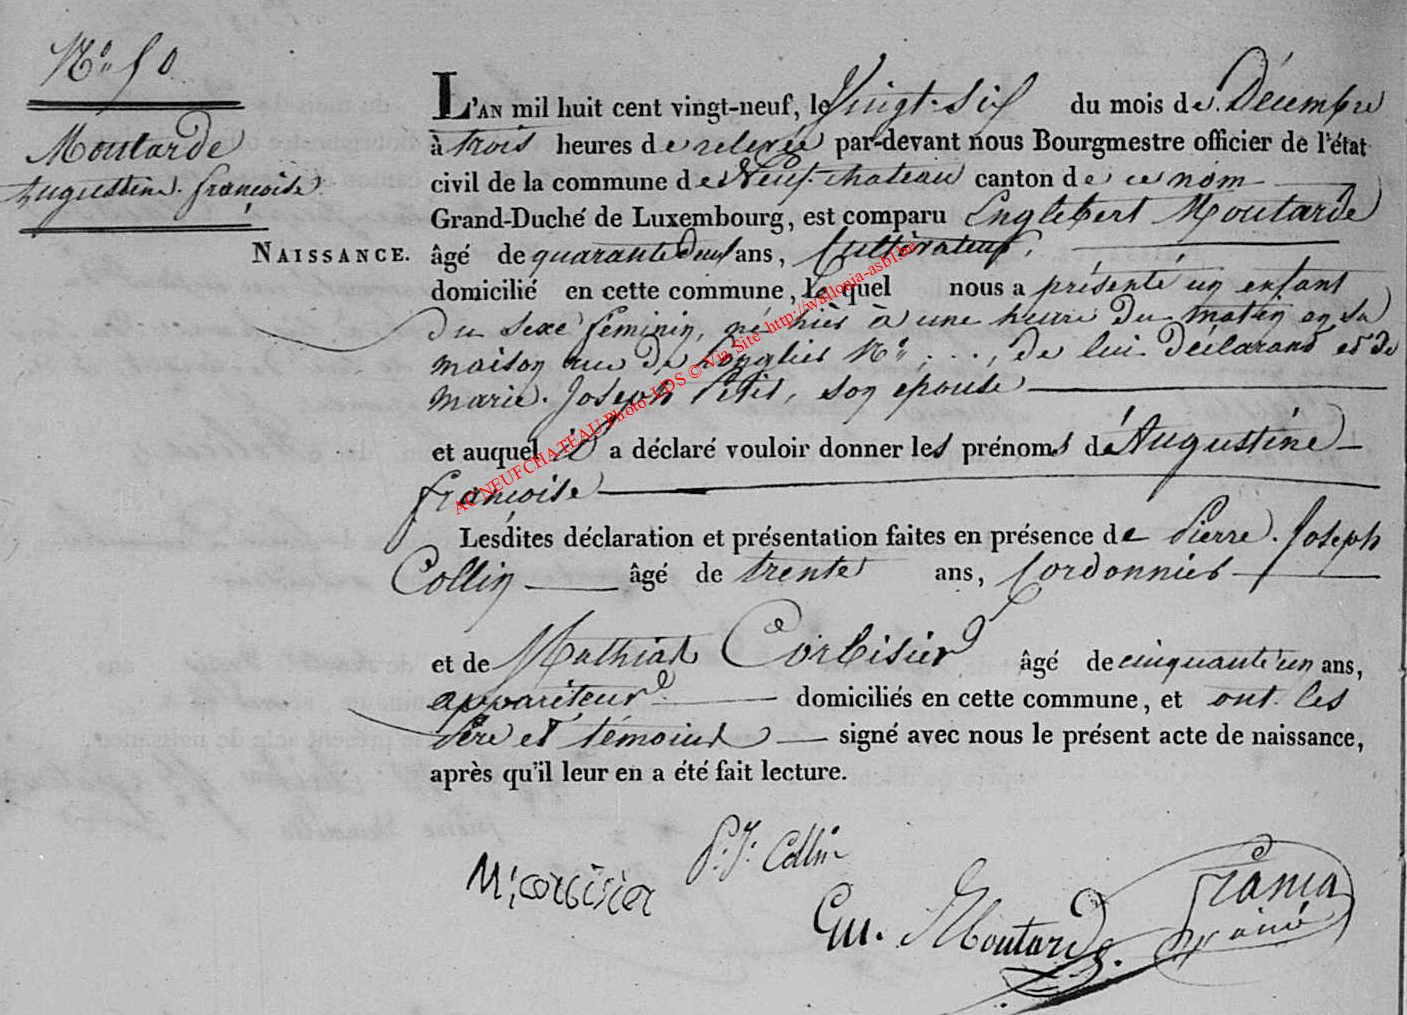 N.° 50
Moutarde
Augustine. françoise
NAISSANCE.
L'AN mil huit cent vingt-neuf, le Vingt-Six du mois de Décembre
à trois heures de relevée par-devant nous Bourgmestre officier de l'état
civil de la commune de Neuf-chateau canton de ce nom
Grand-Duché de Luxembourg, est comparu Englebert Moutarde
âgé de quarante deux ans, Cultivateur,
domicilié en cette commune, lequel nous a présenté un enfant
du Sexe féminin, né hier à une heure du matin en sa
maison rue de Longlier N.° ..., de lui déclarant et de
marie. Joseph Petit, son épouse
et auquel il a déclaré vouloir donner les prénoms d'Augustine
françoise
Lesdites déclaration et présentation faites en présence de Pierre. Joseph
Collin âgé de trente ans, Cordonnier
et de Mathias Corbisier âgé de cinquante'un ans,
appariteur domiciliés en cette commune, et ont les
Père et témoins signé avec nous le présent acte de naissance,
après qu'il leur en a été fait lecture.
P: J: Collin
M: corbisier
Moutarde
ainé
AC NEUFCHATEAU Photo-LDS © Via Site http://wallonia-asbl.be